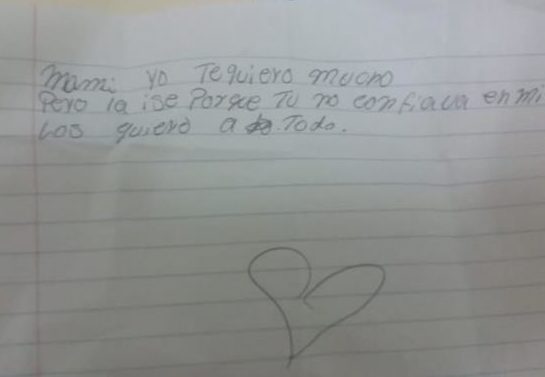 Mami yo Te quiero mucho
Pero la ise Porque Tu no confiava en mi
Los quiero a Todo.